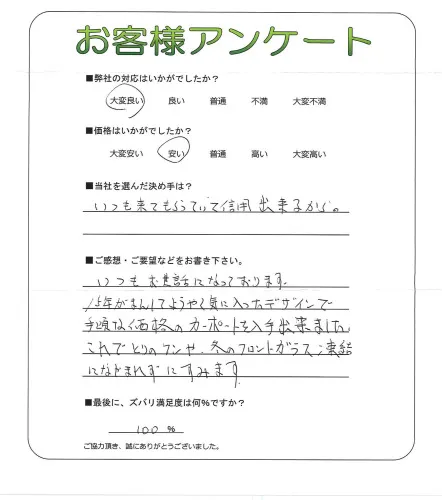 お客様アンケート
■弊社の対応はいかがでしたか？
大変良い 良い 普通 不満 大変不満
■価格はいかがでしたか？
大変安い 安い 普通 高い 大変高い
■当社を選んだ決め手は？
いつも来てもらっていて信用出来るから。
■ご感想・ご要望などをお書き下さい。
いつもお世話になっております。
15年がまんしてようやく気に入ったデザインで
手頃な価格のカーポートを入手出来ました
これでとりのフンや、冬のフロントガラス凍結
になやまれずにすみます
■最後に、ズバリ満足度は何％ですか？
100 %
ご協力頂き、誠にありがとうございました。